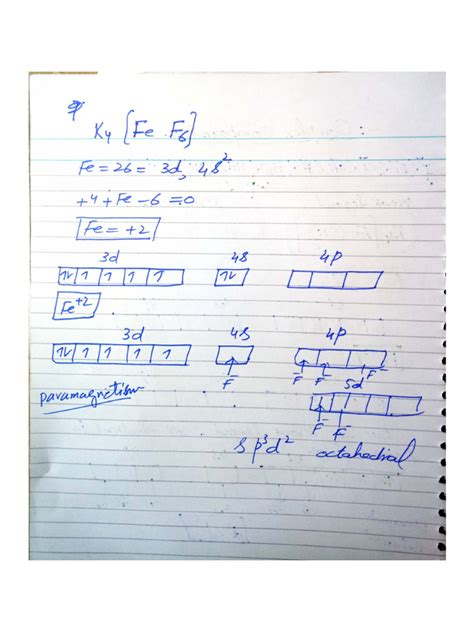 K4 [Fe F6]
Fe = 26 = 3d, 4s²
+4 + Fe - 6 = 0
Fe = +2
3d 4s 4p
1L 1 1 1 1 1L
Fe+2
3d 4s 4p
1L 1 1 1 1
F- F- F- F-
5d
F- F-
paramagnetism
sp³d² octahedral